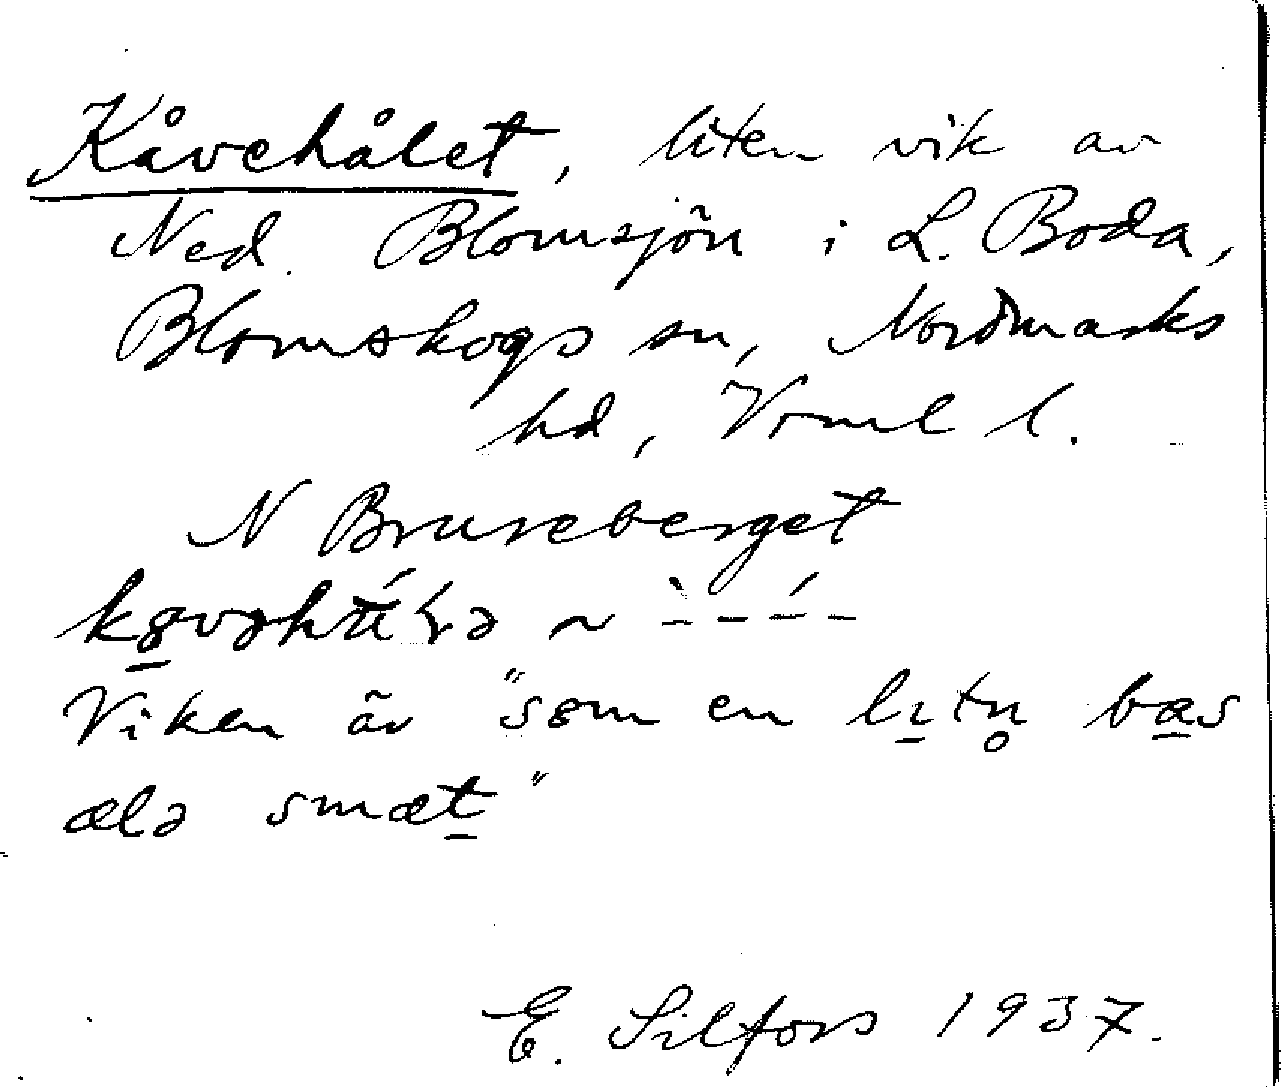 Kåvehålet, liten vik av
Ned. Blomsjön i L. Boda,
Blomskogs sn, Nordmarks
hd, Vrml l.
N Bruseberget
~ ` - - ´ -
Viken är "som en litn̥ bæs
ælə smæt"
E. Silfors 1937.